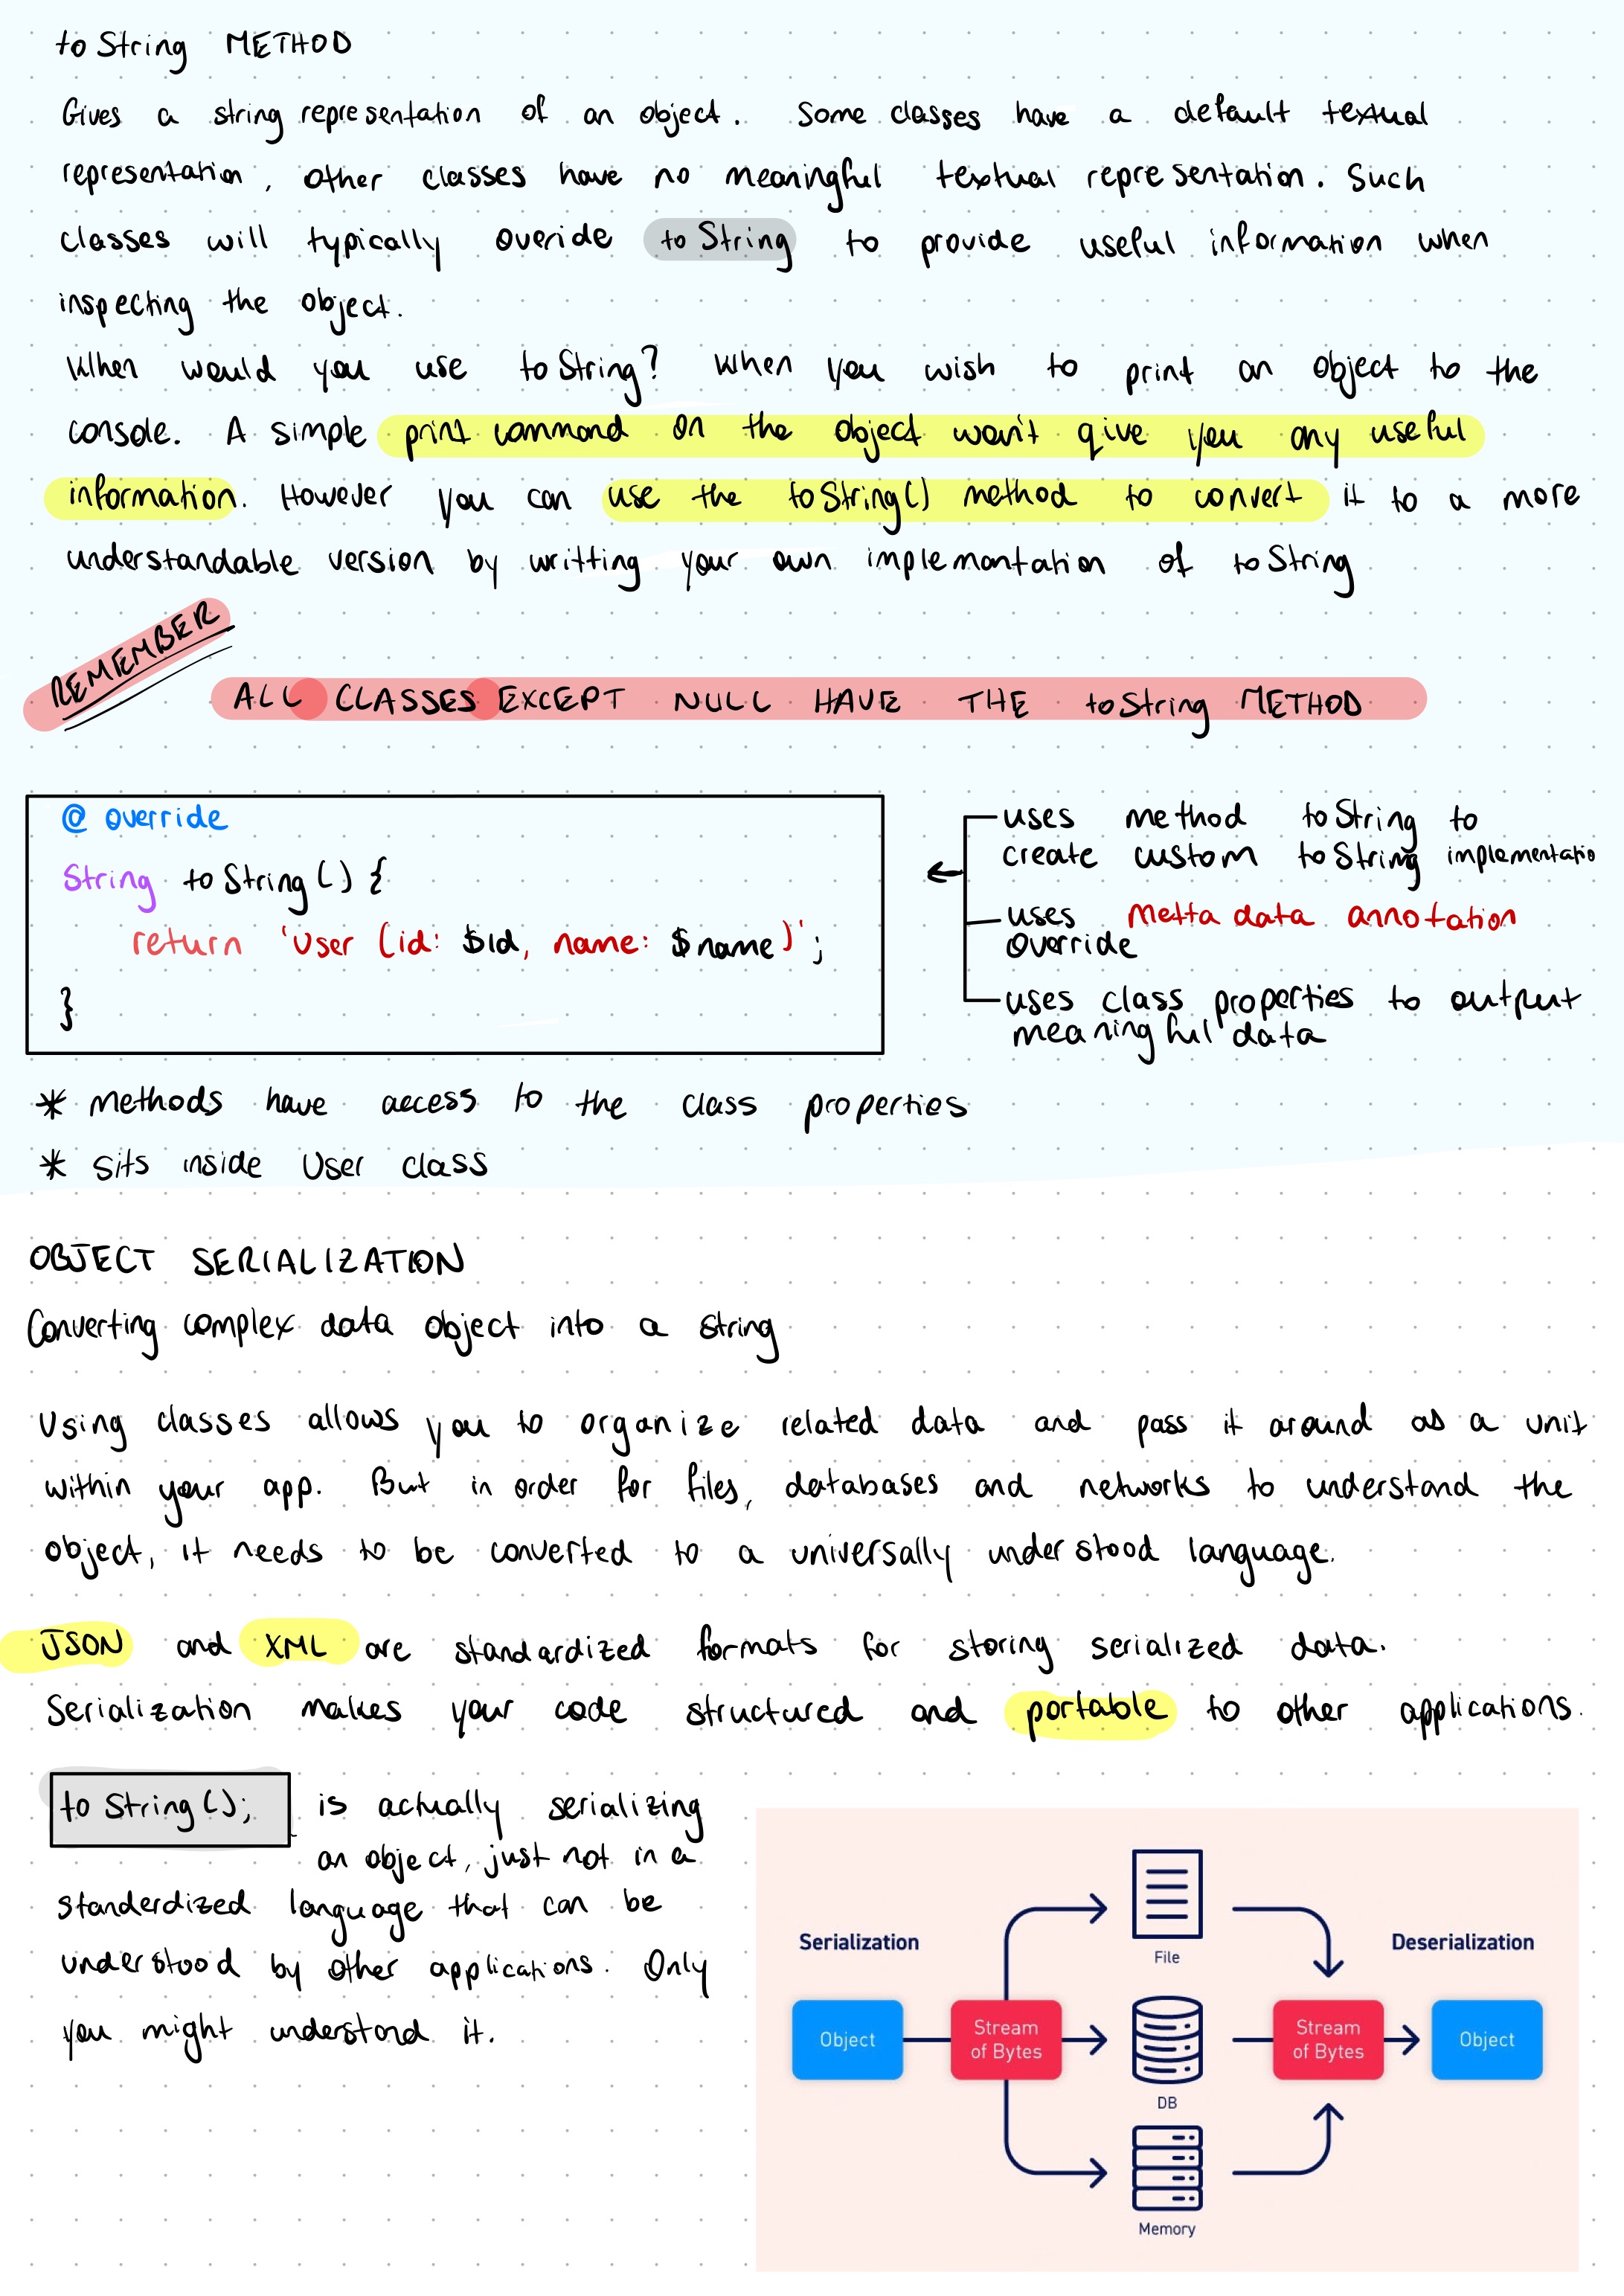 toString METHOD
Gives a string representation of an object. Some classes have a default textual
representation, other classes have no meaningful textual representation. Such
classes will typically overide toString to provide useful information when
inspecting the object.
When would you use toString? When you wish to print an object to the
console. A simple print command on the object won't give you any useful
information. However you can use the toString() method to convert it to a more
understandable version by writting your own implemantation of toString
REMEMBER
ALL CLASSES EXCEPT NULL HAVE THE toString METHOD
@override
String toString() {
return 'User (id: $id, name: $name)';
}
uses method toString to
create custom toString implementatio
uses Metta data annotation
override
uses class properties to output
meaningful data
* methods have access to the class properties
* sits inside User class
OBJECT SERIALIZATION
Converting complex data object into a string
Using classes allows you to organize related data and pass it around as a unit
within your app. But in order for files, databases and networks to understand the
object, it needs to be converted to a universally understood language.
JSON and XML are standardized formats for storing serialized data.
Serialization makes your code structured and portable to other applications.
toString(); is actually serializing
an object, just not in a
standerdized language that can be
understood by other applications. Only
you might understand it.
Serialization
Deserialization
File
Object
Stream
of Bytes
DB
Stream
of Bytes
Object
Memory